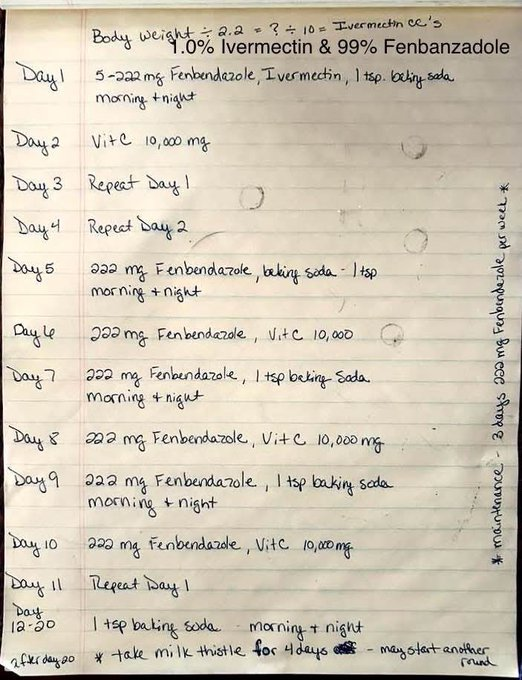 Body Weight ÷ 2.2 = ? ÷ 10 = Ivermectin cc's
1.0% Ivermectin & 99% Fenbanzadole
Day 1 5-222 mg Fenbendazole, Ivermectin, 1 tsp. baking soda
morning + night
Day 2 Vit C 10,000 mg
Day 3 Repeat Day 1
Day 4 Repeat Day 2
Day 5 222 mg Fenbendazole, baking soda - 1 tsp
morning + night
Day 6 222 mg Fenbendazole, Vit C 10,000
Day 7 222 mg Fenbendazole, 1 tsp baking Soda
morning + night
Day 8 222 mg Fenbendazole, Vit C 10,000 mg
Day 9 222 mg Fenbendazole, 1 tsp baking soda
morning + night
Day 10 222 mg Fenbendazole, Vit C 10,000 mg
Day 11 Repeat Day 1
Day
12-20 1 tsp baking soda - morning + night
after day 20 * take milk thistle for 4 days - may start another
round
* maintenance - 3 days 222 mg Fenbendazole per week *